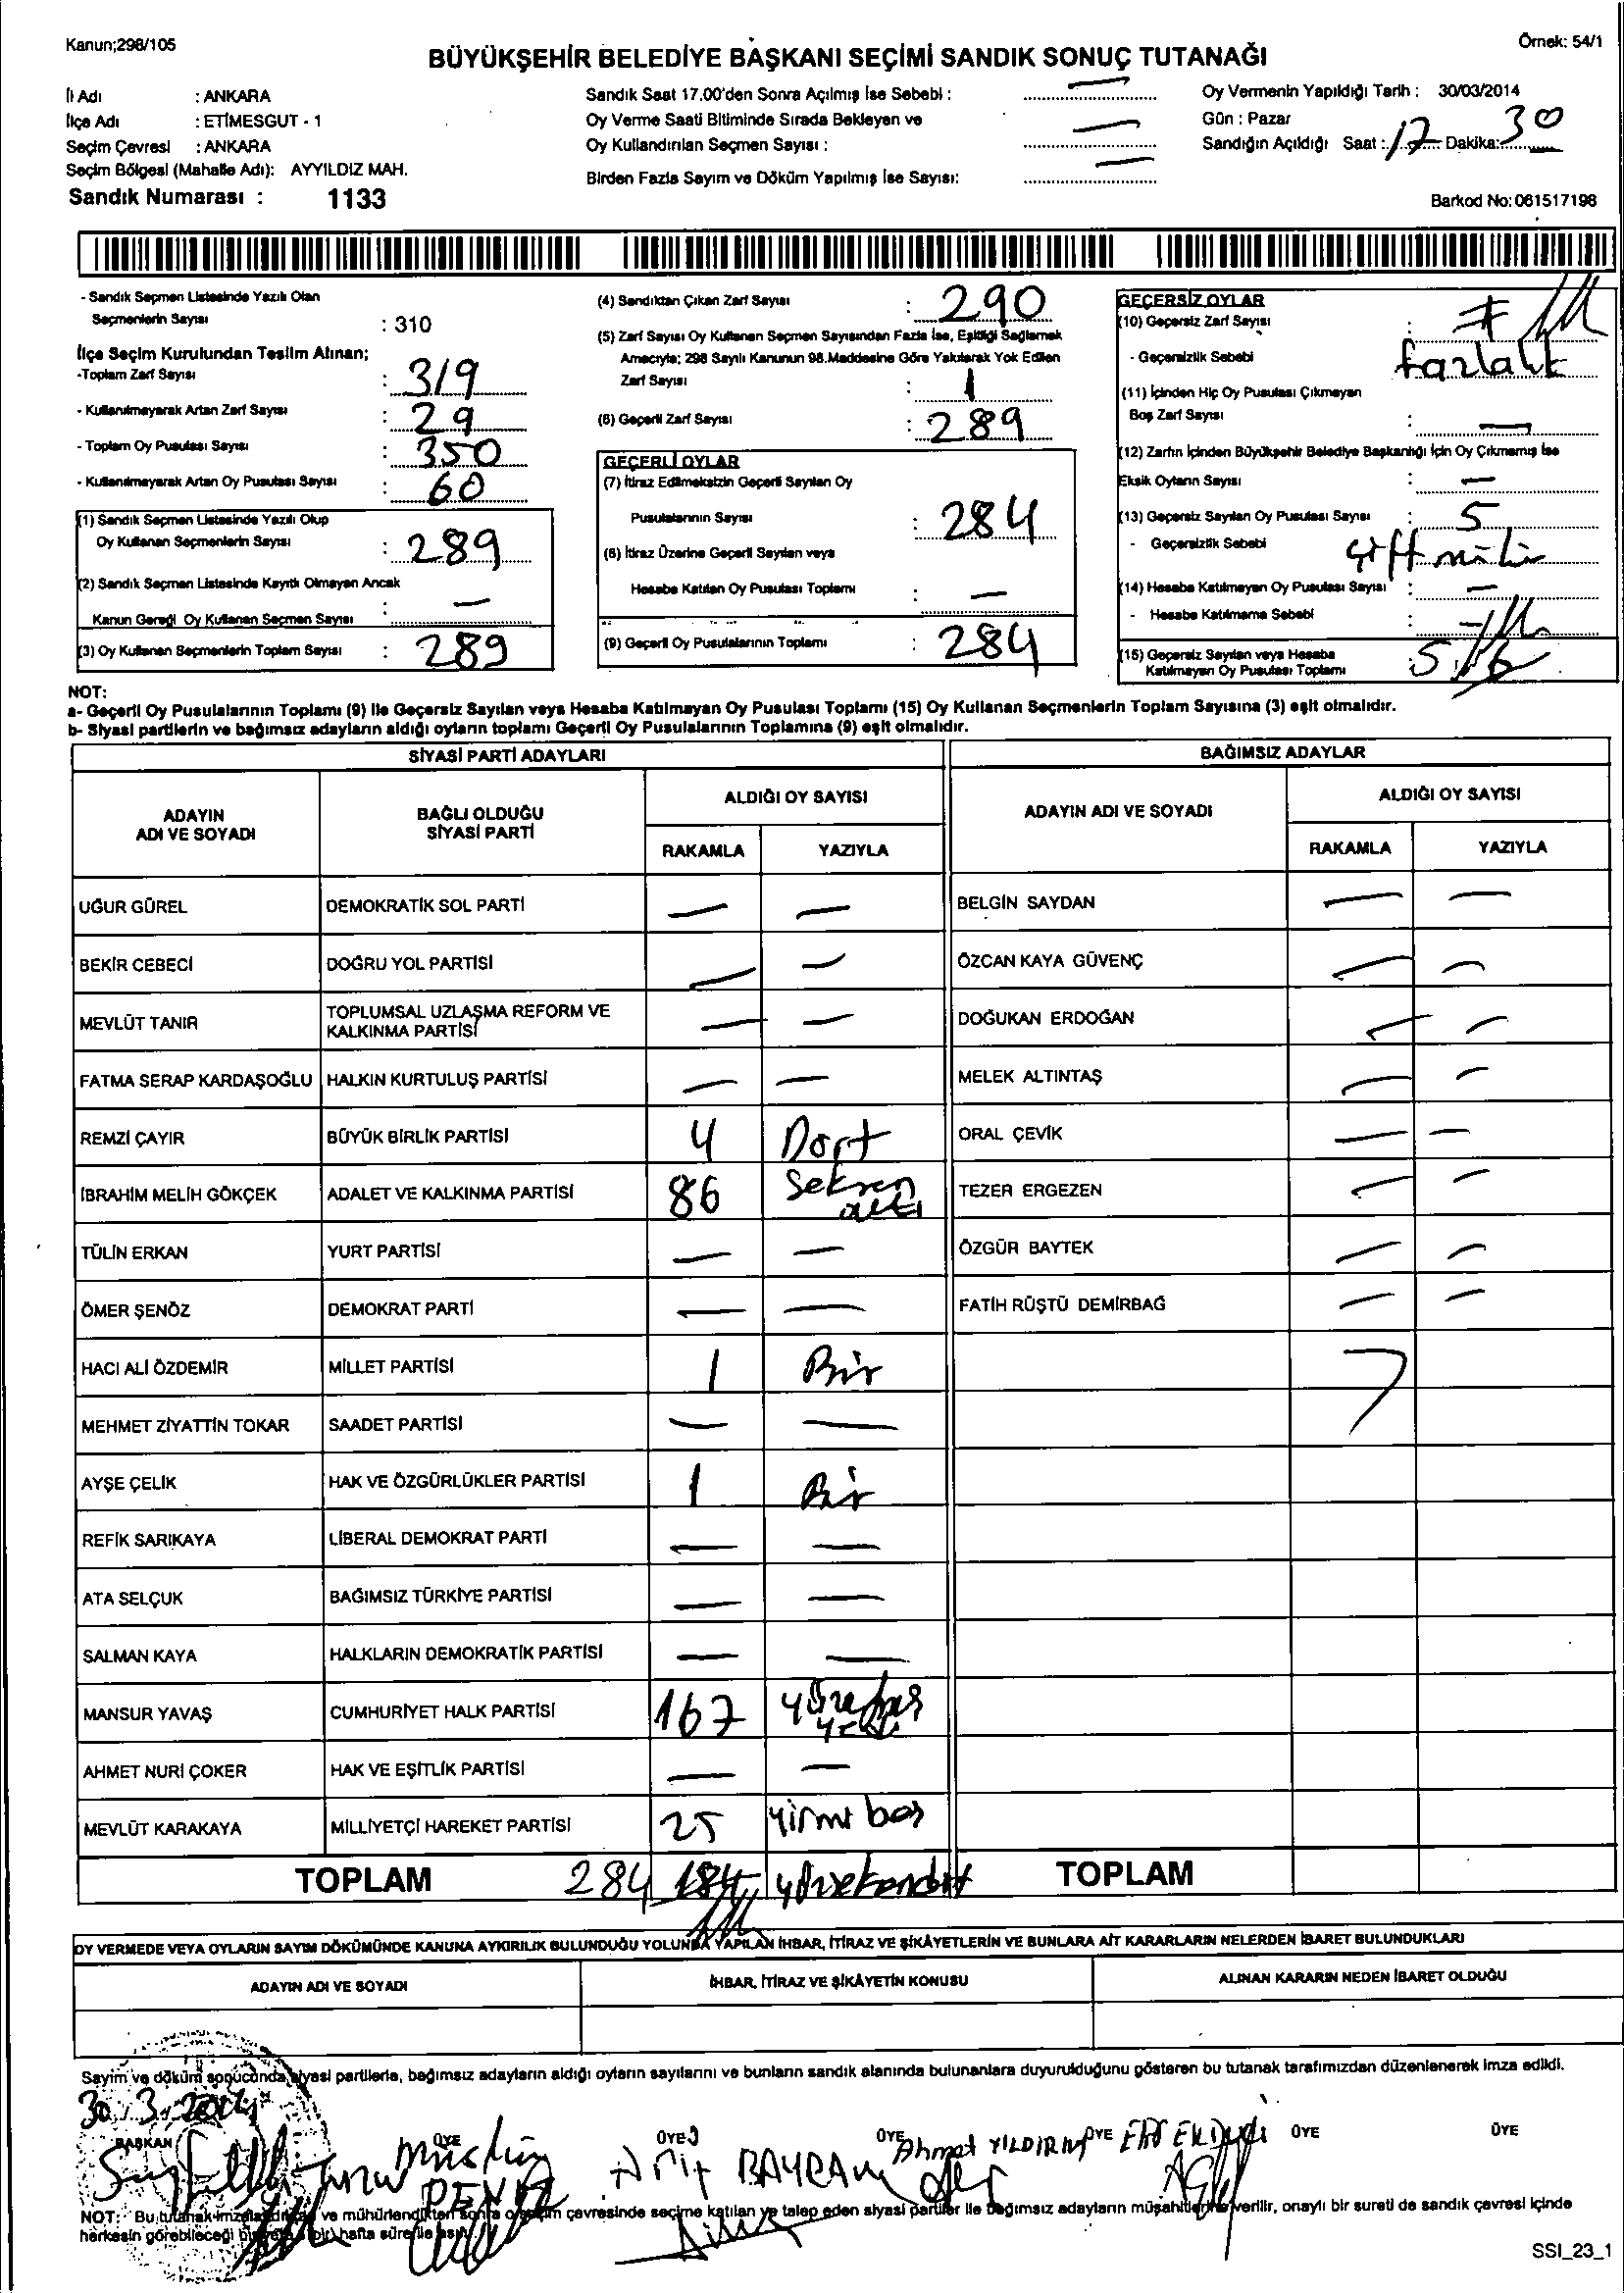 Kanun;298/105
Örnek: 54/1
BÜYÜKŞEHİR BELEDİYE BAŞKANI SEÇİMİ SANDIK SONUÇ TUTANAĞI
İl Adı : ANKARA
İlçe Adı : ETİMESGUT - 1
Seçim Çevresi : ANKARA
Seçim Bölgesi (Mahalle Adı): AYYILDIZ MAH.
Sandık Numarası : 1133
Sandık Saat 17.00'den Sonra Açılmış İse Sebebi : —
Oy Verme Saati Bitiminde Sırada Bekleyen ve
Oy Kullandırılan Seçmen Sayısı : —
Birden Fazla Sayım ve Döküm Yapılmış İse Sayısı: —
Oy Vermenin Yapıldığı Tarih : 30/03/2014
Gün : Pazar
Sandığın Açıldığı Saat : 17 Dakika: 30
Barkod No: 061517198
- Sandık Seçmen Listesinde Yazılı Olan
Seçmenlerin Sayısı : 310
İlçe Seçim Kurulundan Teslim Alınan;
-Toplam Zarf Sayısı : 319
- Kullanılmayarak Artan Zarf Sayısı : 29
- Toplam Oy Pusulası Sayısı : 350
- Kullanılmayarak Artan Oy Pusulası Sayısı : 60
(1) Sandık Seçmen Listesinde Yazılı Olup
Oy Kullanan Seçmenlerin Sayısı : 289
(2) Sandık Seçmen Listesinde Kayıtlı Olmayan Ancak
Kanun Gereği Oy Kullanan Seçmen Sayısı : —
(3) Oy Kullanan Seçmenlerin Toplam Sayısı : 289
(4) Sandıktan Çıkan Zarf Sayısı : 290
(5) Zarf Sayısı Oy Kullanan Seçmen Sayısından Fazla İse, Eşitliği Sağlamak
Amacıyla; 298 Sayılı Kanunun 98.Maddesine Göre Yakılarak Yok Edilen
Zarf Sayısı : 1
(6) Geçerli Zarf Sayısı : 289
GEÇERLİ OYLAR
(7) İtiraz Edilmeksizin Geçerli Sayılan Oy
Pusulalarının Sayısı : 284
(8) İtiraz Üzerine Geçerli Sayılan veya
Hesaba Katılan Oy Pusulası Toplamı : —
(9) Geçerli Oy Pusulalarının Toplamı : 284
GEÇERSİZ OYLAR
(10) Geçersiz Zarf Sayısı :
- Geçersizlik Sebebi : fazlalık
(11) İçinden Hiç Oy Pusulası Çıkmayan
Boş Zarf Sayısı : —
(12) Zarfın İçinden Büyükşehir Belediye Başkanlığı İçin Oy Çıkmamış İse
Eksik Oyların Sayısı : —
(13) Geçersiz Sayılan Oy Pusulası Sayısı : 5
- Geçersizlik Sebebi : çift mühür
(14) Hesaba Katılmayan Oy Pusulası Sayısı : —
- Hesaba Katılmama Sebebi : —
(15) Geçersiz Sayılan veya Hesaba
Katılmayan Oy Pusulası Toplamı : 5 6
NOT:
a- Geçerli Oy Pusulalarının Toplamı (9) ile Geçersiz Sayılan veya Hesaba Katılmayan Oy Pusulası Toplamı (15) Oy Kullanan Seçmenlerin Toplam Sayısına (3) eşit olmalıdır.
b- Siyasi partilerin ve bağımsız adayların aldığı oyların toplamı Geçerli Oy Pusulalarının Toplamına (9) eşit olmalıdır.
SİYASİ PARTİ ADAYLARI
BAĞIMSIZ ADAYLAR
ADAYIN ADI VE SOYADI
BAĞLI OLDUĞU SİYASİ PARTİ
ALDIĞI OY SAYISI
RAKAMLA YAZIYLA
ADAYIN ADI VE SOYADI
ALDIĞI OY SAYISI
RAKAMLA YAZIYLA
UĞUR GÜREL DEMOKRATİK SOL PARTİ — — BELGİN SAYDAN — —
BEKİR CEBECİ DOĞRU YOL PARTİSİ — — ÖZCAN KAYA GÜVENÇ — —
MEVLÜT TANIR TOPLUMSAL UZLAŞMA REFORM VE KALKINMA PARTİSİ — — DOĞUKAN ERDOĞAN — —
FATMA SERAP KARDAŞOĞLU HALKIN KURTULUŞ PARTİSİ — — MELEK ALTINTAŞ — —
REMZİ ÇAYIR BÜYÜK BİRLİK PARTİSİ 4 Dört ORAL ÇEVİK — —
İBRAHİM MELİH GÖKÇEK ADALET VE KALKINMA PARTİSİ 86 Seksen altı TEZER ERGEZEN — —
TÜLİN ERKAN YURT PARTİSİ — — ÖZGÜR BAYTEK — —
ÖMER ŞENÖZ DEMOKRAT PARTİ — — FATİH RÜŞTÜ DEMİRBAĞ — —
HACI ALİ ÖZDEMİR MİLLET PARTİSİ 1 Bir
MEHMET ZİYATTİN TOKAR SAADET PARTİSİ — —
AYŞE ÇELİK HAK VE ÖZGÜRLÜKLER PARTİSİ 1 Bir
REFİK SARIKAYA LİBERAL DEMOKRAT PARTİ — —
ATA SELÇUK BAĞIMSIZ TÜRKİYE PARTİSİ — —
SALMAN KAYA HALKLARIN DEMOKRATİK PARTİSİ — —
MANSUR YAVAŞ CUMHURİYET HALK PARTİSİ 167
AHMET NURİ ÇOKER HAK VE EŞİTLİK PARTİSİ — —
MEVLÜT KARAKAYA MİLLİYETÇİ HAREKET PARTİSİ 25 Yirmi beş
TOPLAM 284 184 TOPLAM
OY VERMEDE VEYA OYLARIN SAYIM DÖKÜMÜNDE KANUNA AYKIRILIK BULUNDUĞU YOLUNDA YAPILAN İHBAR, İTİRAZ VE ŞİKÂYETLERİN VE BUNLARA AİT KARARLARIN NELERDEN İBARET BULUNDUKLARI
ADAYIN ADI VE SOYADI İHBAR, İTİRAZ VE ŞİKÂYETİN KONUSU ALINAN KARARIN NEDEN İBARET OLDUĞU
Sayım ve döküm sonucunda, siyasi partilerle, bağımsız adayların aldığı oyların sayılarını ve bunların sandık alanında bulunanlara duyurulduğunu gösteren bu tutanak tarafımızdan düzenlenerek imza edildi.
30.3.2014
BAŞKAN ÜYE ÜYE ÜYE ÜYE ÜYE ÜYE
Arif BAYRAM Ahmet YILDIRIM
NOT: Bu tutanak imzalandıktan ve mühürlendikten sonra o seçim çevresinde seçime katılan ve talep eden siyasi partiler ile bağımsız adayların müşahitlerine verilir, onaylı bir sureti de sandık çevresi içinde
herkesin görebileceği bir yere (bir) hafta süre ile asılır.
SSI_23_1